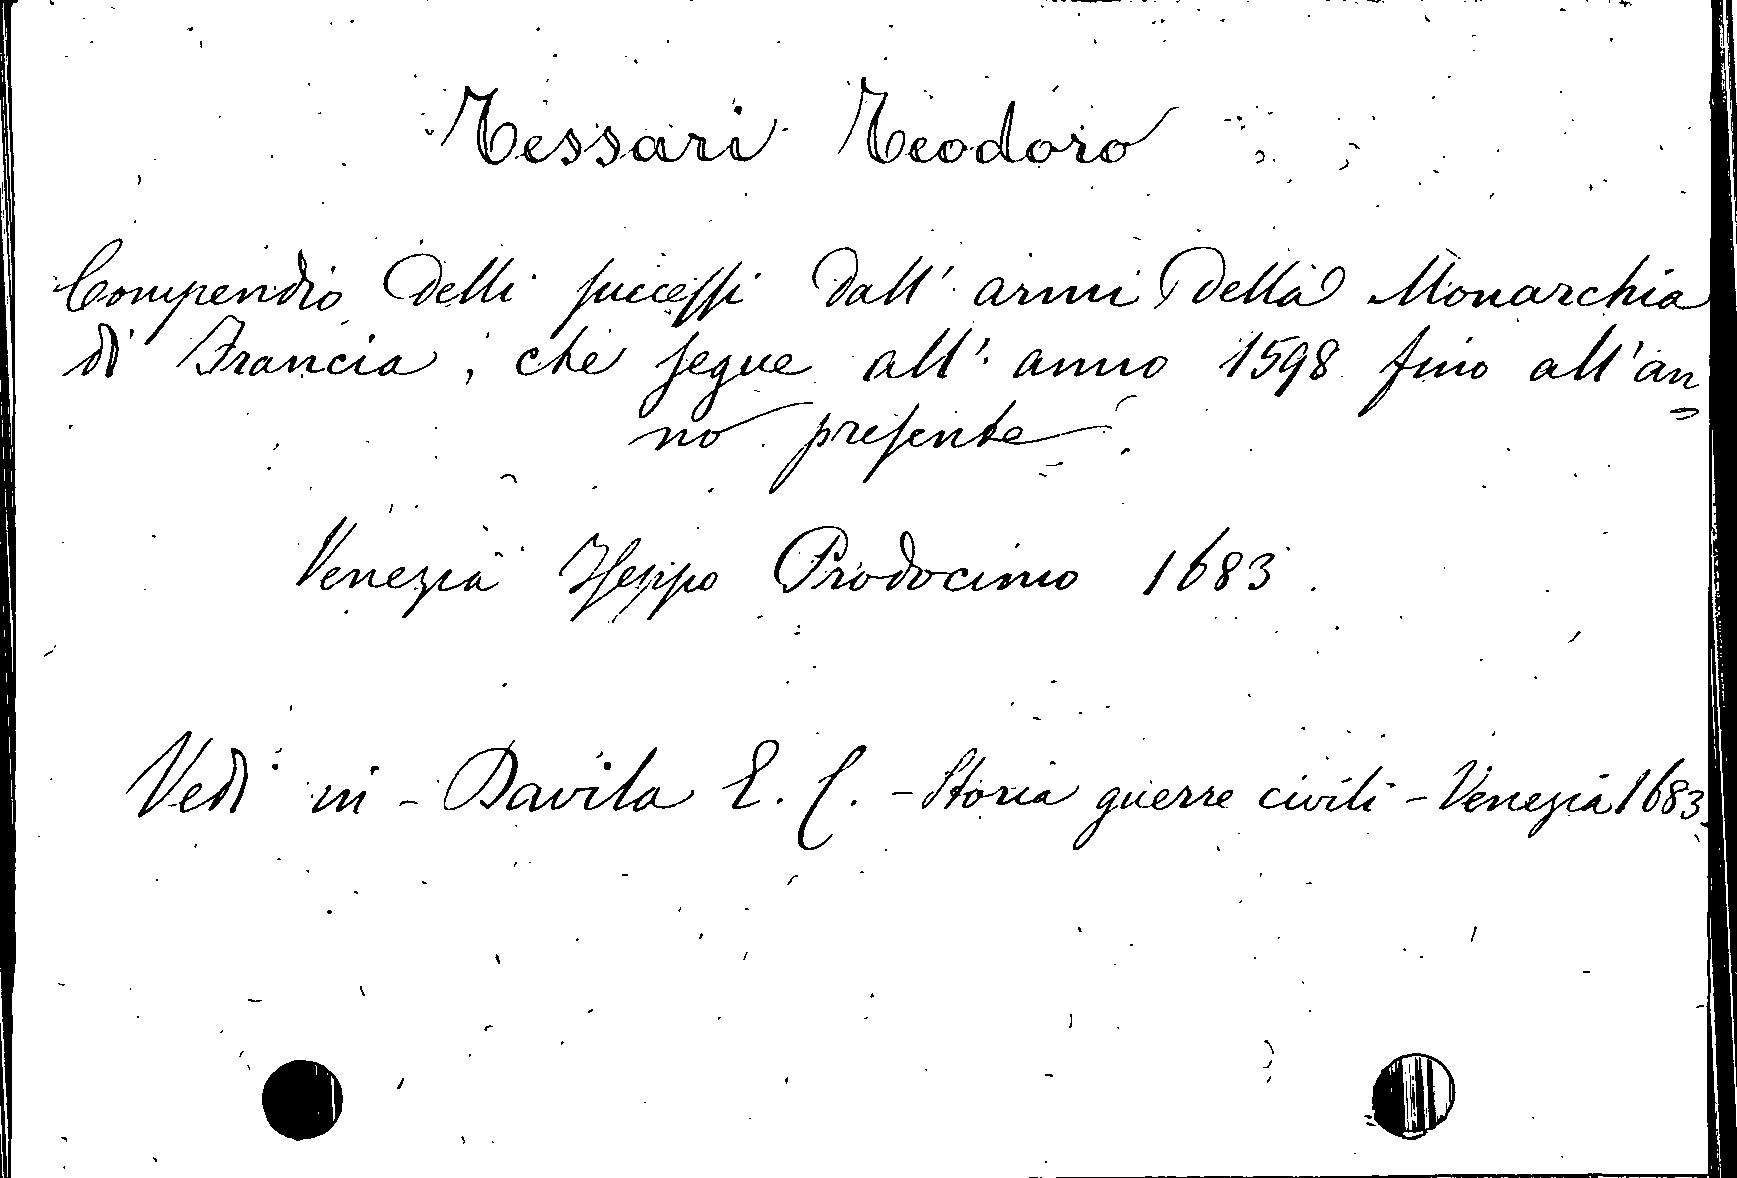 Tessari Teodoro
Compendio delli successi dall'armi della Monarchia
di Francia, che segue all'anno 1598 fino all'an
no presente.
Venezia Iseppo Prodocimo 1683.
Vedi in - Davila E. C. - Storia guerre civili - Venezia 1683.